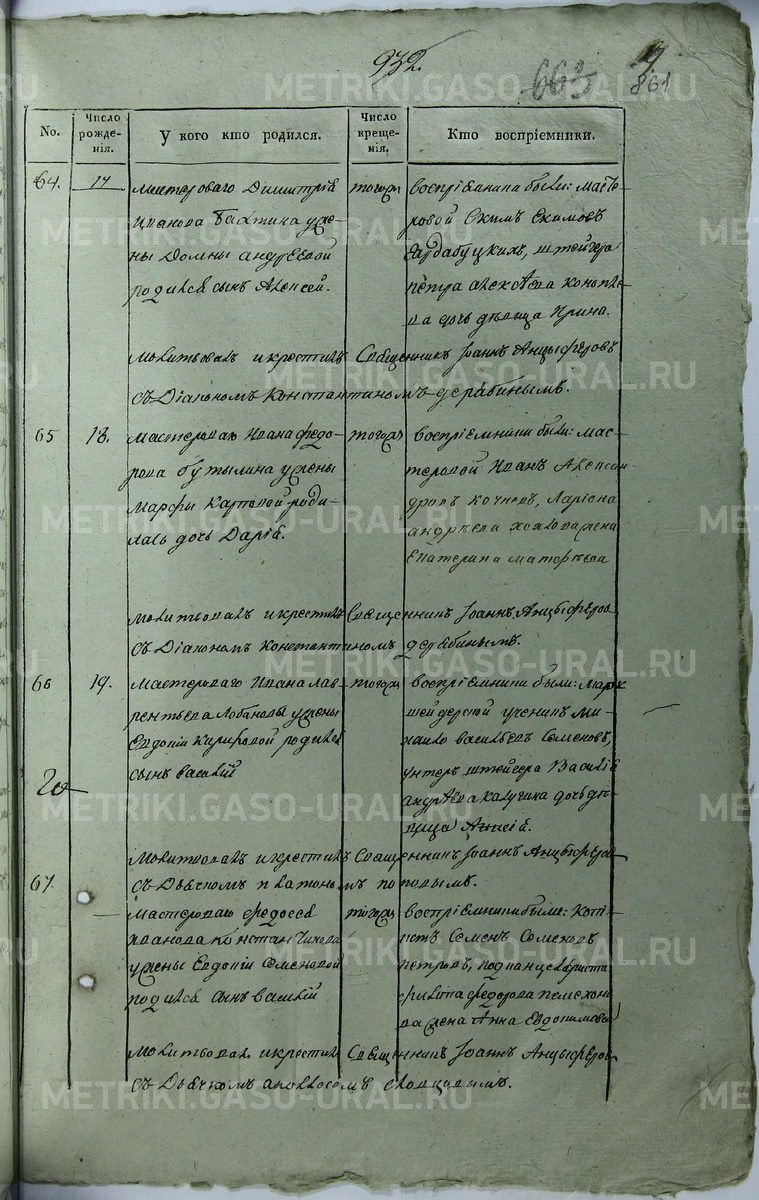 932.
663
861
No.
Число рожде-нія.
У кого кто родился.
Число креще-нія.
Кто воспріемники.
64.
17
мастероваго Димитрія
Иванова Бахтина у же-
ны Домны андреевой
родился сынъ Алексей.
тогожъ
воспріемники были: масте-
ровой Екимъ Екимовъ
штейгера
петра алексѣева
ва дочь дѣвица Ирина.
молитвовалъ и крестилъ Священникъ Іоаннъ Анцыферовъ
съ Діакономъ Константиномъ дерябинымъ.
65
18.
мастероваго Ивана федо-
рова бутылина у жены
Марфы Карповой роди-
лась дочь Дарія.
тогожъ
воспріемники были: мас-
теровой Иванъ Алексан-
дровъ кочневъ, Ларіона
андрѣева жена
Екатерина матвѣева
молитвовалъ и крестилъ Священникъ Іоаннъ Анцыферовъ
съ Діакономъ константиномъ дерябинымъ.
66
19.
мастероваго Ивана лав-
рентьева Лобанова у жены
Евдокіи Кириловой родился
сынъ василій
тогожъ
воспріемники были: Марк-
шейдерской ученикъ ми-
хаило васильевъ Семеновъ,
унтеръ штейгера Василія
андрѣева калугина дочь дѣ-
вица Анисія.
молитвовалъ и крестилъ Священникъ Іоаннъ Анцыферовъ
съ Дьячкомъ платономъ поповымъ.
20
67.
мастероваго федосея
иванова константинова
у жены Евдокіи Семеновой
родился сынъ василій
тогожъ
воспріемники были: копі-
истъ Семенъ Семеновъ
петровъ, подканцеляриста
филипа федорова
ва жена Анна Евдокимова
молитвовалъ и крестилъ Священникъ Іоаннъ Анцыферовъ
съ Дьячкомъ
METRIKI.GASO-URAL.RU